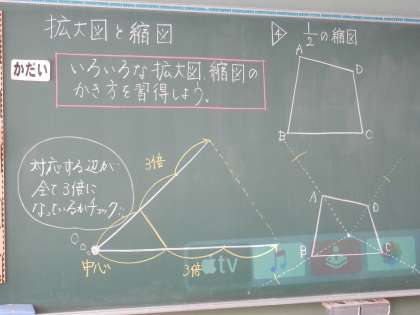 拡大図と縮図
かだい
いろいろな拡大図、縮図の
かき方を習得しよう。
対応する辺が
全て3倍に
なっているかチェック!!
3倍
中心
3倍
4 1/2の縮図
A
D
B
C
A
D
B
C
tv